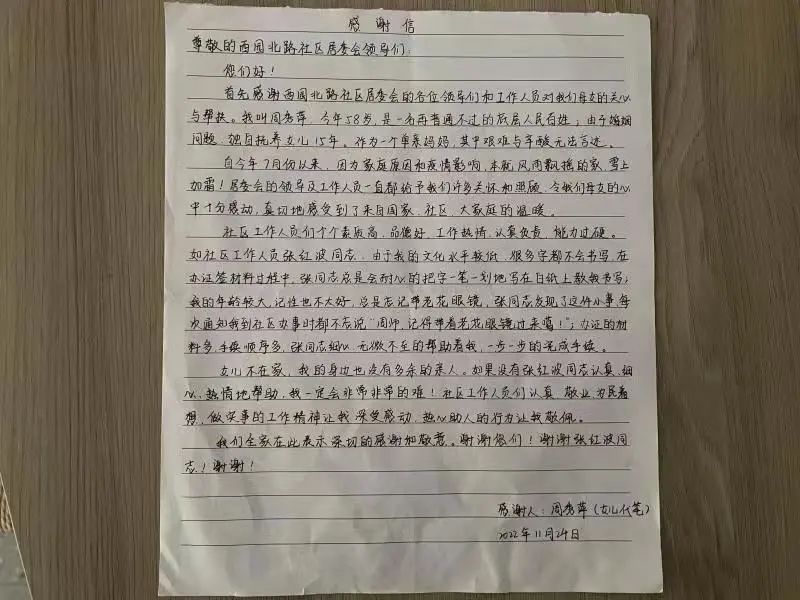 感谢信
尊敬的西园北路社区居委会领导们:
您们好!
首先感谢西园北路社区居委会的各位领导们和工作人员对我们母女的关心
与帮扶。我叫周秀萍,今年58岁,是一名再普通不过的底层人民百姓;由于婚姻
问题,独自抚养女儿15年。作为一个单亲妈妈,其中艰难与辛酸无法言述。
自今年7月份以来,因为家庭原因和疫情影响,本就风雨飘摇的家,雪上
加霜!居委会的领导及工作人员一直都给予我们许多关怀和照顾,令我们母女的心
中十分感动,真切地感受到了来自国家、社区、大家庭的温暖。
社区工作人员们个个素质高、品德好、工作热情、认真负责、能力过硬。
如社区工作人员张红波同志,由于我的文化水平较低,很多字都不会书写,在
办证签材料过程中,张同志总是会耐心的把字一笔一划地写在白纸上教我书写;
我的年龄较大,记性也不太好,总是忘记带老花眼镜,张同志发现了这件小事,每
次通知我到社区办事时都不忘说“周师,记得带着老花眼镜过来噶!”;办证的材
料多,手续顺序多,张同志细心、无微不至的帮助着我,一步一步的完成手续。
女儿不在家,我的身边也没有多余的亲人。如果没有张红波同志认真、细
心、热情地帮助,我一定会非常非常的难!社区工作人员们认真、敬业、为民着
想,做实事的工作精神让我深受感动,热心助人的行为让我敬佩。
我们全家在此表示深切的感谢和敬意。谢谢您们!谢谢张红波同
志!谢谢!
感谢人:周秀萍(女儿代笔)
2022年11月24日